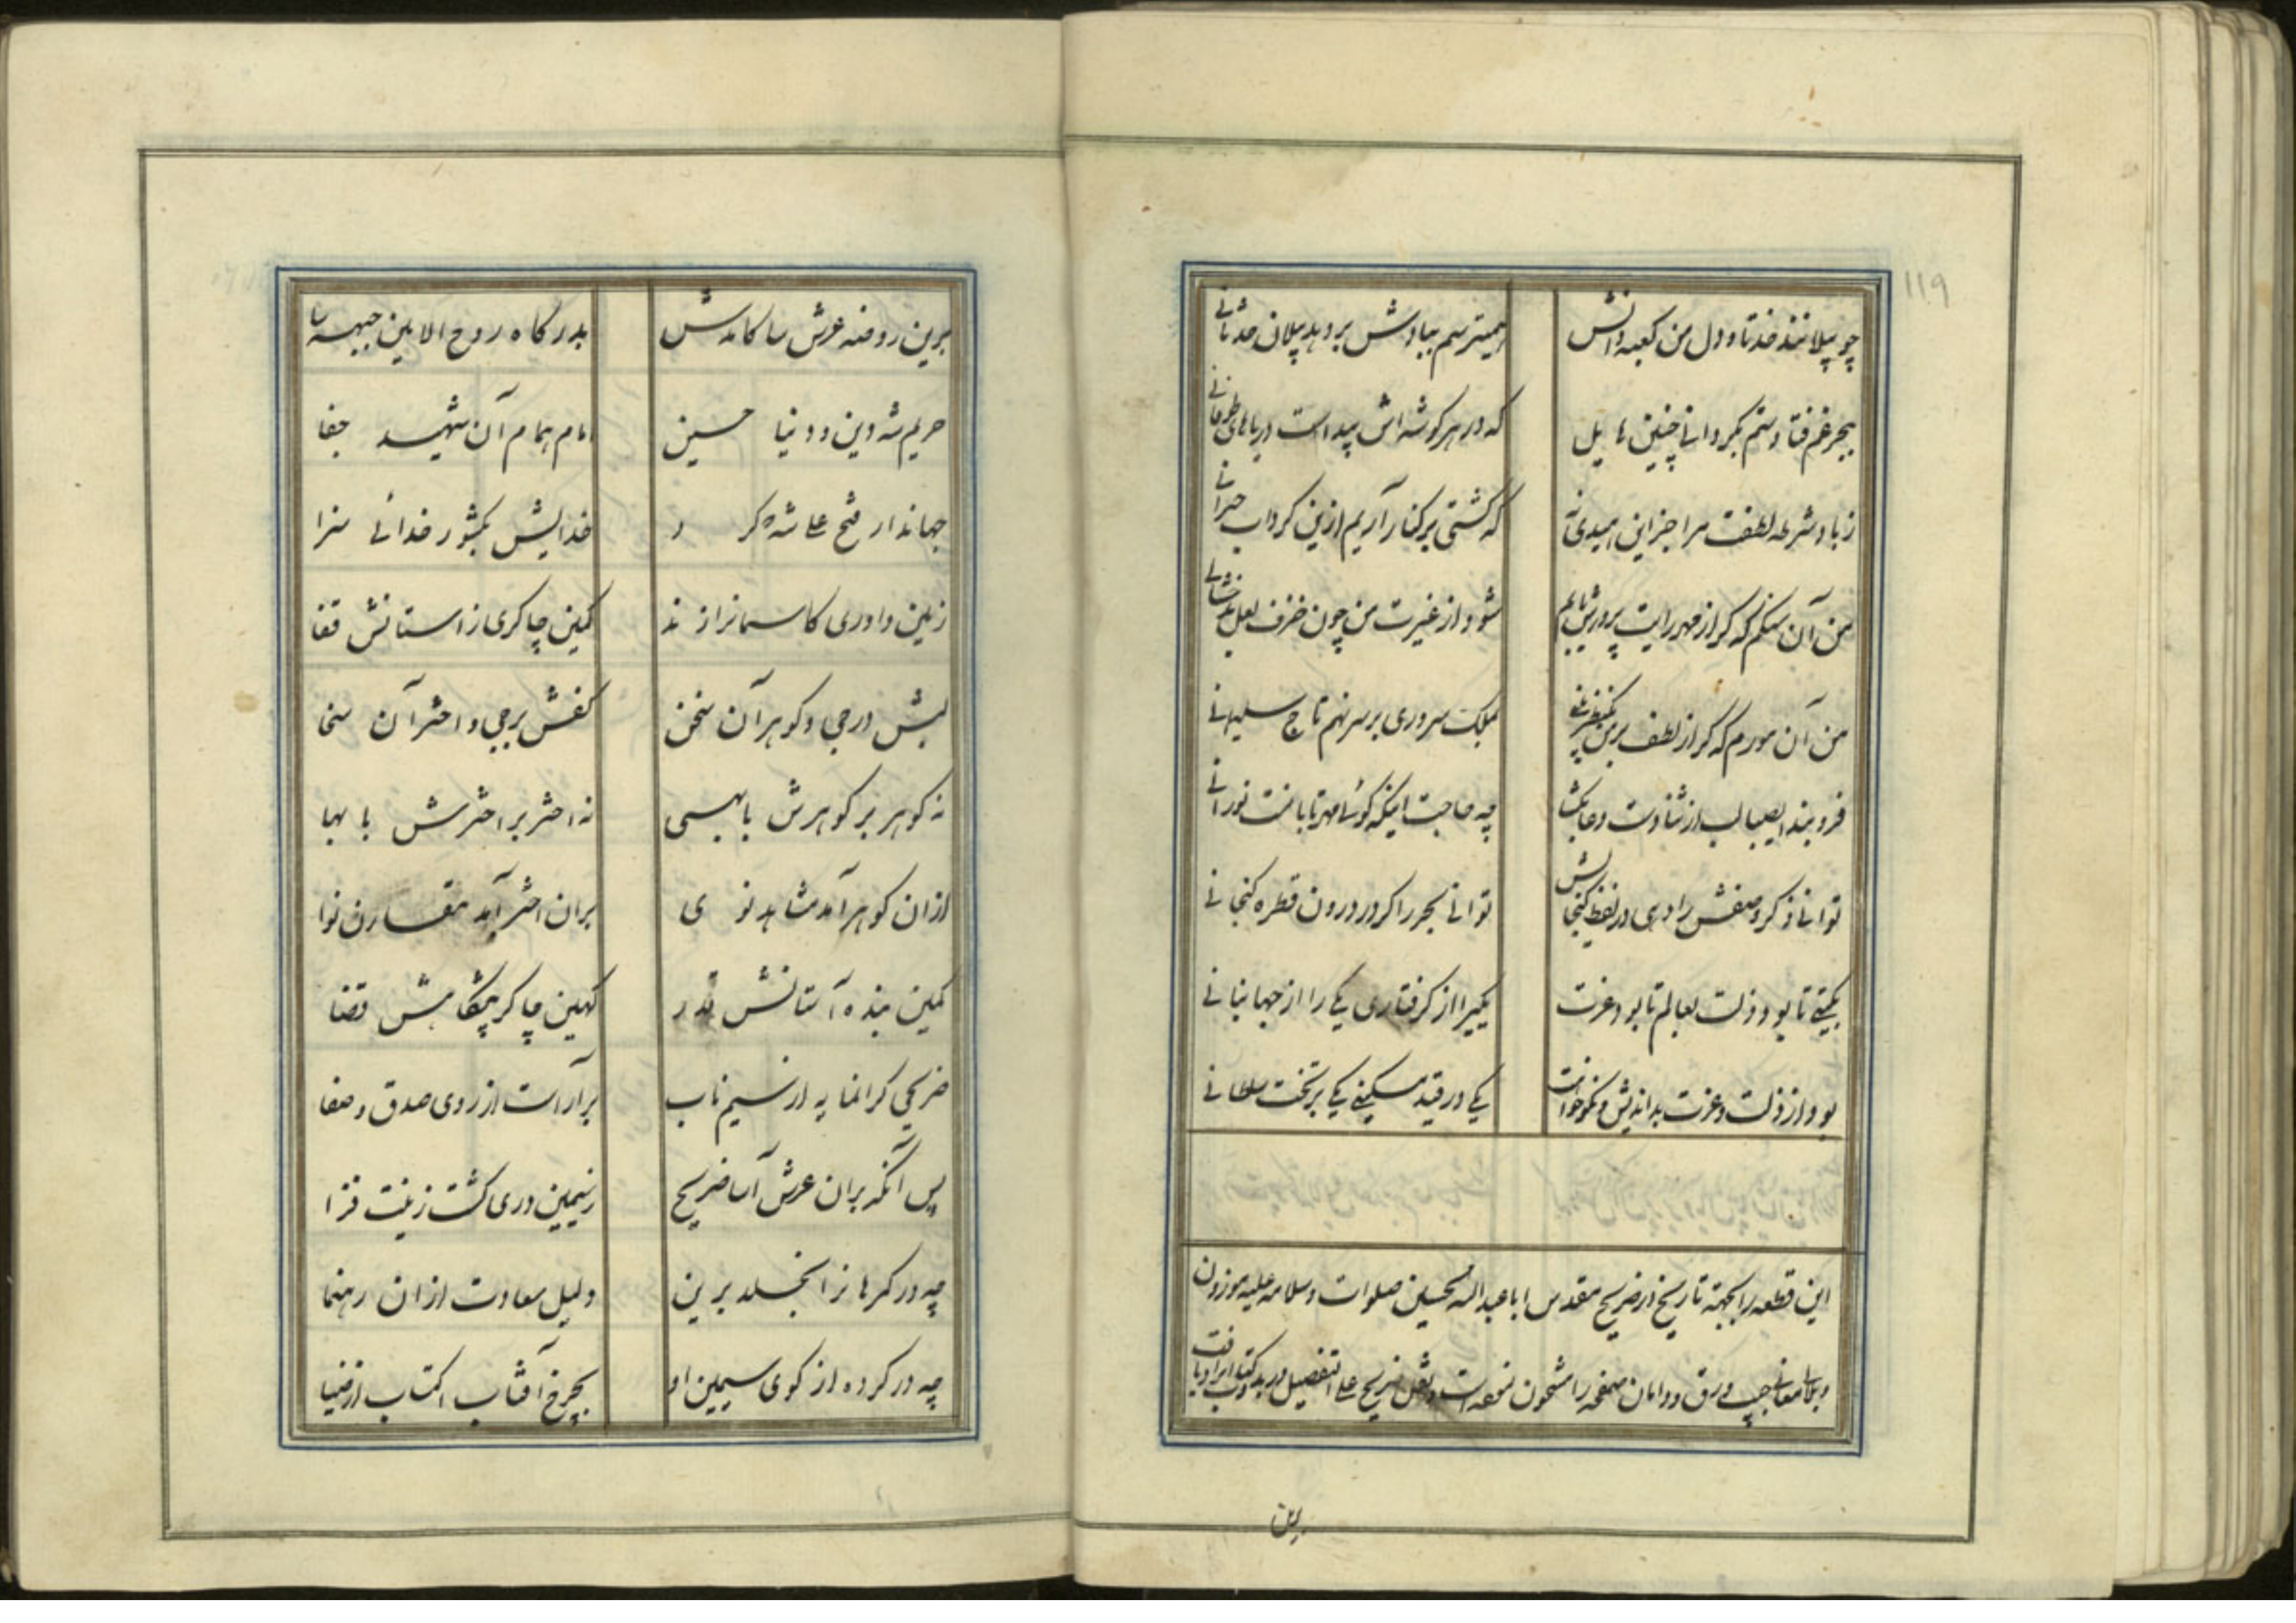 119
چو پیلانند خدتا و دل من کعبه دانش
همیترسم ببادش بر دهد پیلان
ببحر غم فتادستم بگردانی چنین هایل
که در هر گوشه‌اش پیداست دریاهای طوفانی
ز باد شرطه لطفت مرا جز این امیدی نه
که کشتی بر کنار آریم ازین گرداب حیرانی
من آن سنگم که گر از مهر رایت پرورش یابم
شود از غیرت من چون خزف لعل بدخشانی
من آن مورم که گر از لطف بر من
بملک سروری بر سر نهم تاج سلیمانی
فروبند ای صبا لب از ثنا دست دعا بگشا
چه حاجت اینکه گوئی مهر تابانست نورانی
توانی ذکر وصفش را دهی در لفظ گنجایش
توانی بحر را گر در درون قطره گنجانی
بگیتی تا بود ذلت بعالم تا بود عزت
یکیرا از گرفتاری یکی را از جهانبانی
بود از ذلت و عزت بداندیش و نکوخواهت
یکی در قید مسکینی یکی بر تخت سلطانی
این قطعه را بجهة تاریخ در ضریح مقدس ابا عبد الله الحسین صلوات و سلامه علیه موزون
جیب ورق و دامان صفحه را مشحون نمود
برین
برین روضه عرش سا کامدش
بدرگاه روح الامین جبهه سا
حریم شه دین و دنیا حسین
امام همام آن شهید جفا
جهاندار فتح علی شه که کرد
خدایش بکشور خدائی سزا
زمین داوری کاسمانراز ند
کمین چاکری ز استانش قفا
لبش درجی و گوهر آن سخن
کفش برجی و اختر آن سخا
نه گوهر بر گوهرش با بهی
نه اختر بر اخترش با بها
ازان گوهر آمد مشاهد نوی
بران اختر آمد مقارن نوا
کمین بنده آستانش قدر
کهین چاکر پیشگاهش قضا
ضریحی گرانمایه از سیم ناب
برآراست از روی صدق و صفا
پس آنگه بران عرش آسا ضریح
ز سیمین دری گشت زینت فزا
چه در گمرهانرا بخلد برین
دلیل سعادت ازان رهنما
چه در کرده از گوی سیمین او
بچرخ آفتاب اکتساب از ضیا